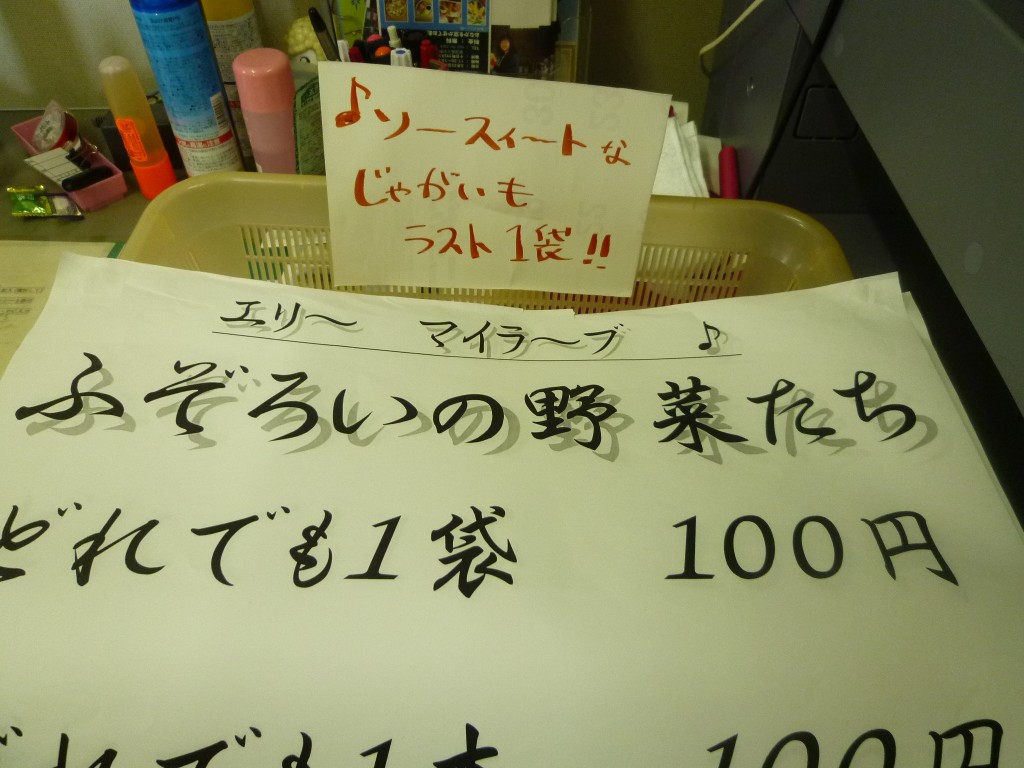 ♪ソースィートな
じゃがいも
ラスト1袋!!
エリ〜 マイラ〜ブ ♪
ふぞろいの野菜たち
どれでも1袋 100円
どれでも1本 100円